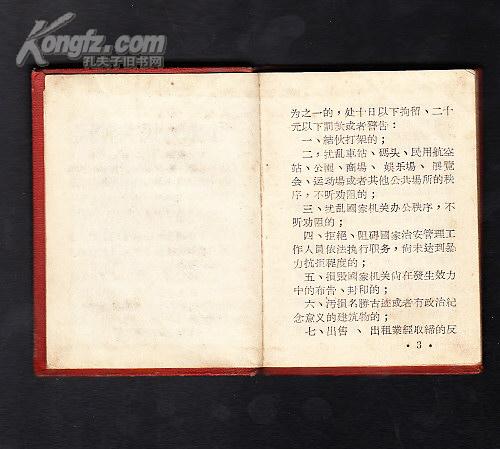 Kongfz.com
孔夫子旧书网
为之一的，处十日以下拘留、二十
元以下罰款或者警告：
一、結伙打架的；
二、扰乱車站、碼头、民用航空
站、公園、商場、娱乐場、展覽
会、运动場或者其他公共場所的秩
序，不听劝阻的；
三、扰乱國家机关办公秩序，不
听劝阻的；
四、拒絕、阻碍國家治安管理工
作人員依法执行职务，尙未达到暴
力抗拒程度的；
五、損毁國家机关尙在發生效力
中的布告、封印的；
六、汚損名勝古迹或者有政治紀
念意义的建筑物的；
七、出售、出租業經取締的反
·3·